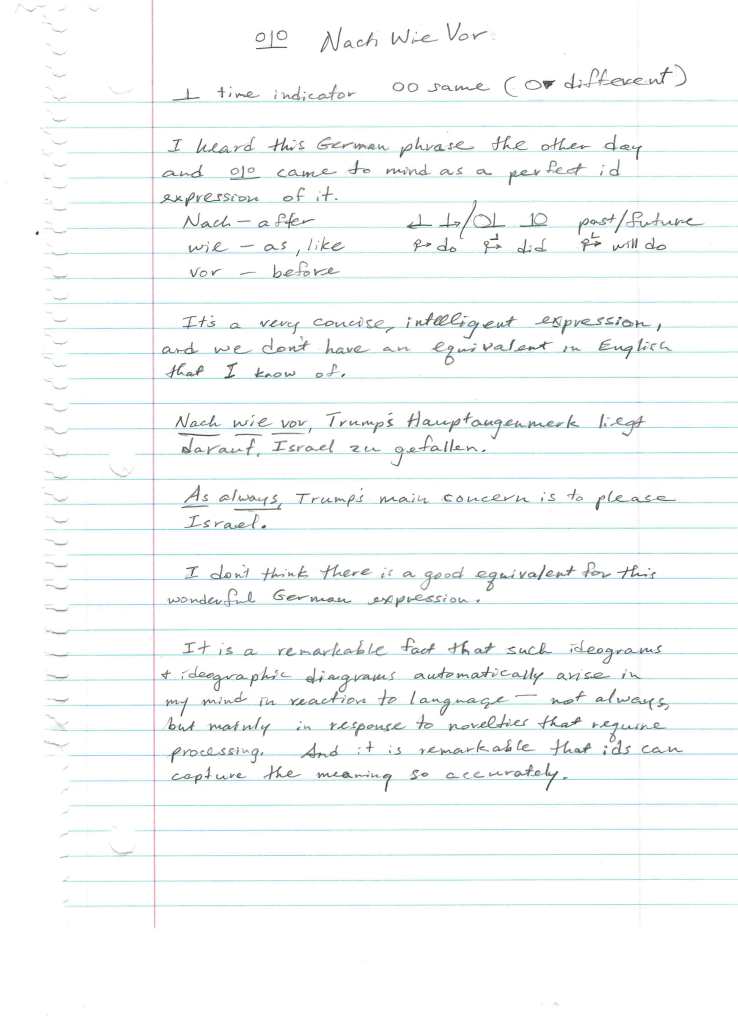 o|o Nach Wie Vor:
⊥ time indicator oo same (or different)
I heard this German phrase the other day
and o|o came to mind as a perfect id
expression of it.
Nach – after past/future
wie – as, like do did will do
vor – before
It's a very concise, intelligent expression,
and we don't have an equivalent in English
that I know of.
Nach wie vor, Trump's Hauptaugenmerk liegt
darauf, Israel zu gefallen.
As always, Trump's main concern is to please
Israel.
I don't think there is a good equivalent for this
wonderful German expression.
It is a remarkable fact that such ideograms
+ ideographic diagrams automatically arise in
my mind in reaction to language – not always,
but mainly in response to novelties that require
processing. And it is remarkable that ids can
capture the meaning so accurately.